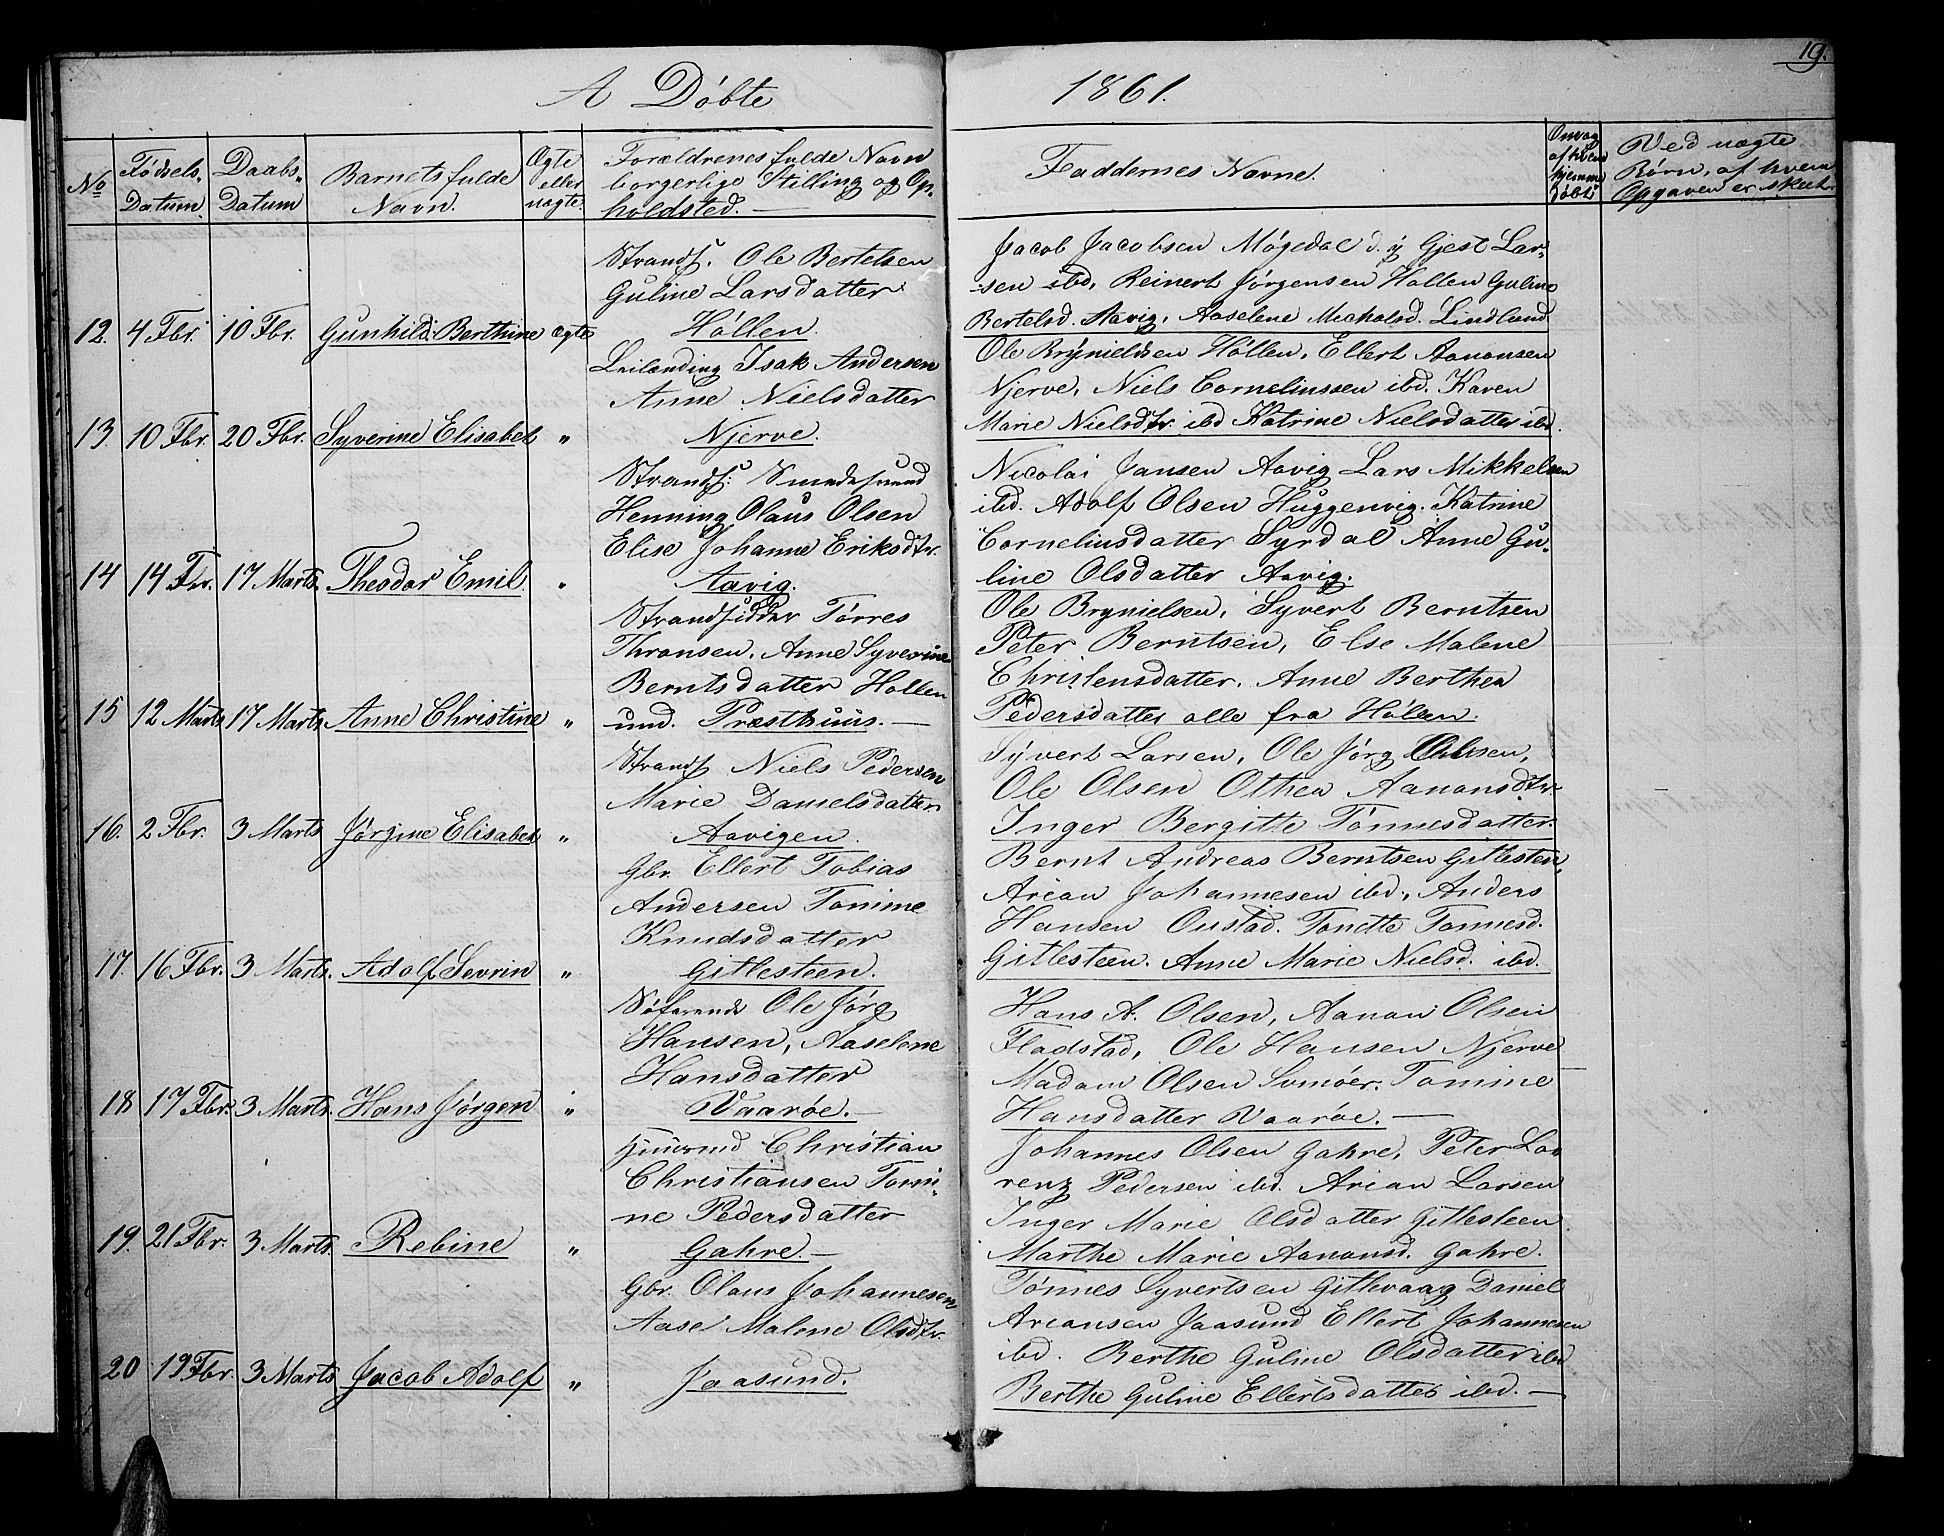 19.
A Døbte 1861.
No
Fødsels-
Datum.
Daabs-
Datum
Barnets fulde
Navn.
Ægte
eller
uægte.
Forældrenes fulde Navn
borgerlige Stilling og Op-
holdsted.
Faddernes Navne.
Om og
af hvem
hjemme
døbt
Ved uægte
Børn, af hvem
Opgaven er skeet.
Strands. Ole Bertelsen
Guline Larsdatter
12. 4 Fbr. 10 Fbr. Gunhild Berthine ægte Høllen.
Jacob Jacobsen Møgedal d. y Gjest Lar-
sen ibd, Reinert Jørgensen Høllen Guline
Bertelsd. Aavig, Aaselene Micholsd. Lindland
Leilænding Isak Andersen
Anne Nielsdatter
13. 10 Fbr. 20 Fbr. Syverine Elisabet " Njerve.
Ole Brynielsen Høllen, Ellert Aanonsen
Njerve, Niels Corneliussen ibd. Karen
Marie Nielsdtr. ibd Katrine Nielsdatter ibd.
Strands: Smedesvend
Henning Olaus Olsen
Elise Johanne Eriksdtr.
14 14 Fbr. 17 Marts. Theodor Emil. " Aavig.
Nicolai Jansen Aavig Lars Mikkelsen
ibd. Adolf Olsen Huggenvig. Katrine
Corneliusdatter Syrdal Anne Gu-
line Olsdatter Aavig.
Strandsidder Tørres
Thronsen. Anne Syverine
Berntsdatter Hollen
15 12 Marts 17 Marts Anne Christine " und. Præsthuus.
Ole Brynielsen, Syvert Berntsen
Peter Berntsen, Else Malene
Christensdatter. Anne Berthea
Pedersdatter alle fra Høllen.
Strands Niels Pedersen
Marie Danielsdatter
16. 2 Fbr. 3 Marts Jørgine Elisabet " Aavigen.
Syvert Larsen, Ole Jørg Olsen,
Ole Olsen Othea Aanonsdtr.
Inger Bergitte Tønnesdatter.
Gbr. Ellert Tobias
Andersen Tonime
Knudsdatter
17. 16 Fbr. 3 Marts. Adolf Sevrin " Gitlesteen.
Bernt Andreas Berntsen Gitlesteen,
Arian Johannesen ibd., Anders
Hansen Oustad. Tonette Tønnesd.
Gitlesteen. Anne Marie Nielsd. ibd.
Søfarende Ole Jørg
Hansen, Aaselene
Hansdatter
18 17 Fbr. 3 Marts. Hans Jørgen " Vaarøe.
Hans A. Olsen, Aanon Olsen
Fladstad, Ole Hansen Njerve
Madam Olsen Svinøer. Tomine
Hansdatter Vaarøe.
Christian
Christiansen Tomi-
ne Pedersdatter
19. 21 Fbr. 3 Marts. Rebine " Gahre.
Johannes Olsen Gahre, Peter Lau
renz Pedersen ibd. Arian Larsen
Inger Marie Olsdatter Gitlesteen
Marthe Marie Aanonsd. Gahre.
Gbr. Olaus Johannesen
Aase Malene Olsdtr.
20 19 Fbr. 3 Marts Jacob Adolf " Jaasund.
Tønnes Syvertsen Gitlevaag Daniel
Ariansen Jaasund Ellert Johannesen
ibd. Berthe Guline Olsdatter ibd
Berthe Guline Ellertsdatter ibd.